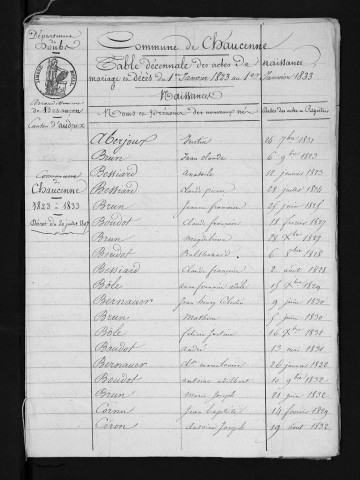 Département
du Doubs
Arrondissement
de Besançon
Canton d'audeux
Commune
de
Chaucenne
1823 à 1833
Décret du 20 juillet 1807
Commune de Chaucenne
Table décennale des actes de naissance
mariage et décès du 1er Janvier 1823 au 1er Janvier 1833
Naissances
Noms et prénoms des nouveaux nés Dates des actes et Registres
Aberjoux Justin 14 7bre 1831
Brun Jean claude 6 9bre 1823
Bessiard Anatoile 12 janvier 1823
Bessiard Claude pierre 28 juillet 1824
Brun Jeanne francoise 25 juin
Boudot Claude françois 18 février 1827
Brun Magdeleine 28 Xbre 1827
Boudot 6 8bre 1828
Bessiard Claude françoise 2 aout 1828
Bôle 15 Xbre 1829
Bernauer Jean 9 juin 1830
Brun Mathieu 5 juin 1830
Bôle felicie justine 16 Xbre 1830
Boudot André 13 mai 1830
Bernauer 26 janvier 1832
Boudot antoine 10 9bre 1832
Brun Marie Joseph 28 juin 1832
Cornu Jean Baptiste 14 février 1829
Ceron Antoine Joseph 19 aout 1832